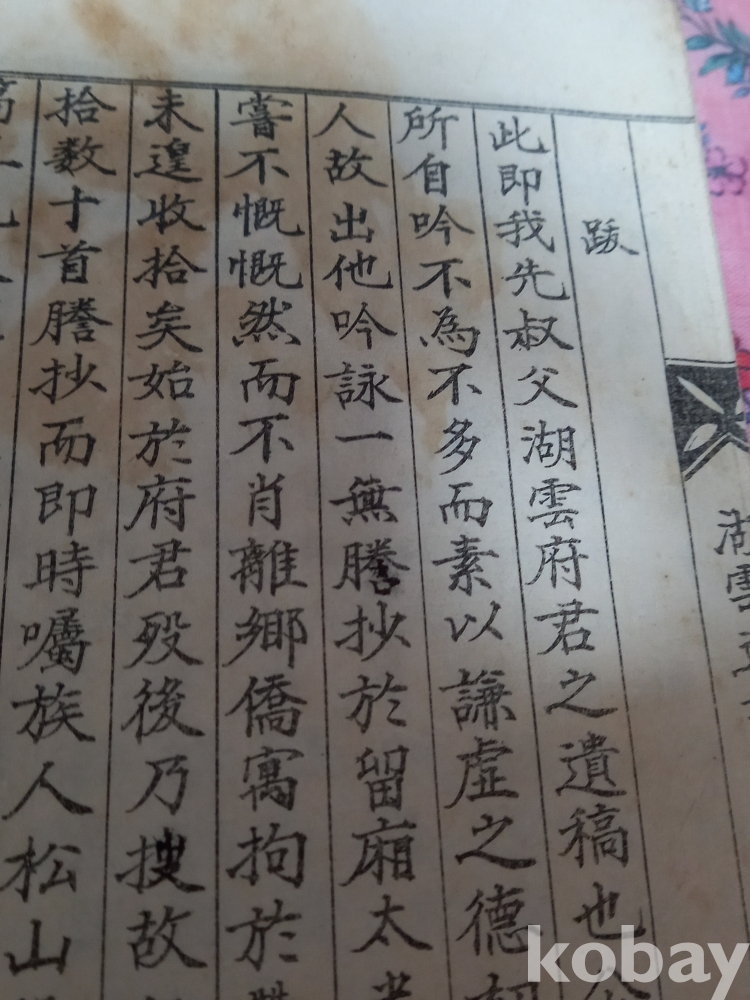 跋
此即我先叔父湖雲府君之遺稿也公
所自吟不為不多而素以謙虛之德
人故出他吟詠一無謄抄於留廂太
嘗不慨慨然而不肖離鄉僑寓拘於
未遑收拾矣始於府君歿後乃搜故
拾數十首謄抄而即時囑族人松山
湖雲
kobay